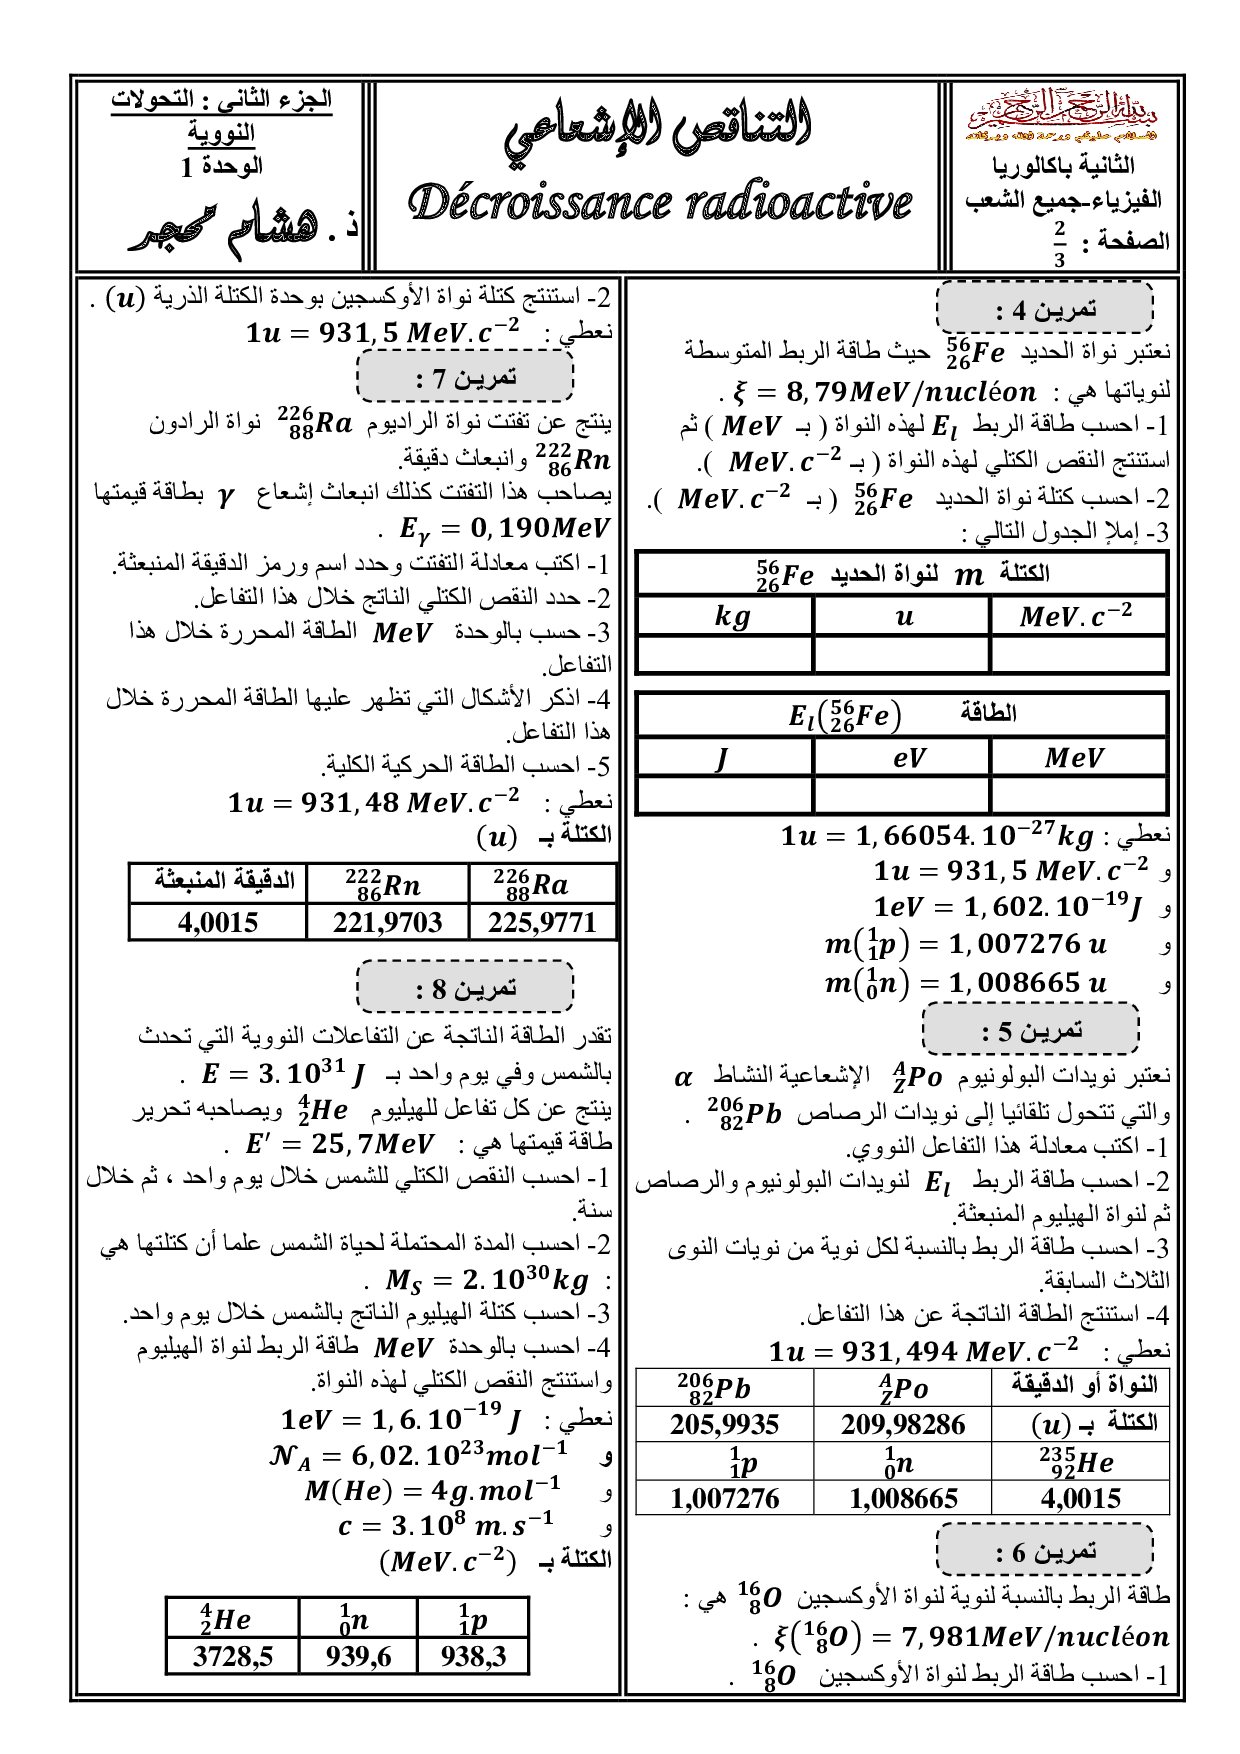 بسم الله الرحمن الرحيم
الثانية باكالوريا
الفيزياء-جميع الشعب
الصفحة : 2/3
التناقص الإشعاعي
Décroissance radioactive
الجزء الثاني : التحولات
النووية
الوحدة 1
ذ . هشام محجر
تمريـن 4 :
نعتبر نواة الحديد ⁵⁶₂₆Fe حيث طاقة الربط المتوسطة
لنوياتها هي : ξ = 8,79MeV/nucléon .
1- احسب طاقة الربط E_l لهذه النواة ( بـ MeV ) ثم
استنتج النقص الكتلي لهذه النواة ( بـ MeV.c⁻² ).
2- احسب كتلة نواة الحديد ⁵⁶₂₆Fe ( بـ MeV.c⁻² ).
3- إملإ الجدول التالي :
الكتلة m لنواة الحديد ⁵⁶₂₆Fe
MeV.c⁻² u kg
الطاقة E_l(⁵⁶₂₆Fe)
MeV eV J
نعطي : 1u = 1,66054.10⁻²⁷kg
و 1u = 931,5 MeV.c⁻²
و 1eV = 1,602.10⁻¹⁹J
و m(¹₁p) = 1,007276 u
و m(¹₀n) = 1,008665 u
تمريـن 5 :
نعتبر نويدات البولونيوم ᴬ_ZPo الإشعاعية النشاط α
والتي تتحول تلقائيا إلى نويدات الرصاص ²⁰⁶₈₂Pb .
1- اكتب معادلة هذا التفاعل النووي.
2- احسب طاقة الربط E_l لنويدات البولونيوم والرصاص
ثم لنواة الهيليوم المنبعثة.
3- احسب طاقة الربط بالنسبة لكل نوية من نويات النوى
الثلاث السابقة.
4- استنتج الطاقة الناتجة عن هذا التفاعل.
نعطي : 1u = 931,494 MeV.c⁻²
النواة أو الدقيقة ᴬ_ZPo ²⁰⁶₈₂Pb
الكتلة بـ (u) 209,98286 205,9935
²³⁵₉₂He ¹₀n ¹₁p
4,0015 1,008665 1,007276
تمريـن 6 :
طاقة الربط بالنسبة لنوية لنواة الأوكسجين ¹⁶₈O هي :
ξ(¹⁶₈O) = 7,981MeV/nucléon .
1- احسب طاقة الربط لنواة الأوكسجين ¹⁶₈O .
2- استنتج كتلة نواة الأوكسجين بوحدة الكتلة الذرية (u) .
نعطي : 1u = 931,5 MeV.c⁻²
تمريـن 7 :
ينتج عن تفتت نواة الراديوم ²²⁶₈₈Ra نواة الرادون
²²²₈₆Rn وانبعاث دقيقة.
يصاحب هذا التفتت كذلك انبعاث إشعاع γ بطاقة قيمتها
E_γ = 0,190MeV .
1- اكتب معادلة التفتت وحدد اسم ورمز الدقيقة المنبعثة.
2- حدد النقص الكتلي الناتج خلال هذا التفاعل.
3- حسب بالوحدة MeV الطاقة المحررة خلال هذا
التفاعل.
4- اذكر الأشكال التي تظهر عليها الطاقة المحررة خلال
هذا التفاعل.
5- احسب الطاقة الحركية الكلية.
نعطي : 1u = 931,48 MeV.c⁻²
الكتلة بـ (u)
²²⁶₈₈Ra ²²²₈₆Rn الدقيقة المنبعثة
225,9771 221,9703 4,0015
تمريـن 8 :
تقدر الطاقة الناتجة عن التفاعلات النووية التي تحدث
بالشمس وفي يوم واحد بـ E = 3.10³¹ J .
ينتج عن كل تفاعل للهيليوم ⁴₂He ويصاحبه تحرير
طاقة قيمتها هي : E′ = 25,7MeV .
1- احسب النقص الكتلي للشمس خلال يوم واحد ، ثم خلال
سنة.
2- احسب المدة المحتملة لحياة الشمس علما أن كتلتها هي
: M_S = 2.10³⁰kg .
3- احسب كتلة الهيليوم الناتج بالشمس خلال يوم واحد.
4- احسب بالوحدة MeV طاقة الربط لنواة الهيليوم
واستنتج النقص الكتلي لهذه النواة.
نعطي : 1eV = 1,6.10⁻¹⁹ J
و 𝒩_A = 6,02.10²³mol⁻¹
و M(He) = 4g.mol⁻¹
و c = 3.10⁸ m.s⁻¹
الكتلة بـ (MeV.c⁻²)
¹₁p ¹₀n ⁴₂He
938,3 939,6 3728,5